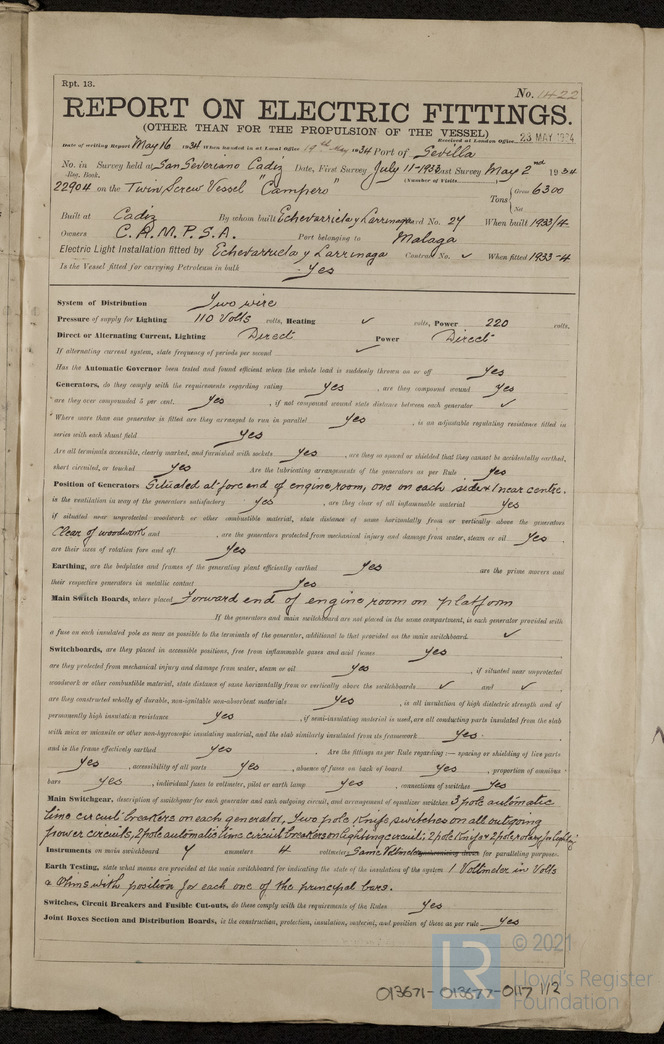 Rpt. 13.
No. 1422
REPORT ON ELECTRIC FITTINGS.
(OTHER THAN FOR THE PROPULSION OF THE VESSEL)
Received at London Office 23 MAY 1934
Date of writing Report May 16 1934 When handed in at Local Office 19th May 1934 Port of Sevilla
No. in Survey held at San Severiano Cadiz Date, First Survey July 11-1933 Last Survey May 2nd 1934
Reg. Book. (Number of Visits
22904 on the Twin Screw Vessel "Campero" Tons { Gross 6300
Net
Built at Cadiz By whom built Echevarrieta y Larrinaga Yard No. 27 When built 1933/4
Owners C.A.M.P.S.A. Port belonging to Malaga
Electric Light Installation fitted by Echevarrieta y Larrinaga Contract No. ✓ When fitted 1933-4
Is the Vessel fitted for carrying Petroleum in bulk Yes
System of Distribution Two wire
Pressure of supply for Lighting 110 Volts volts, Heating ✓ volts, Power 220 volts,
Direct or Alternating Current, Lighting Direct Power Direct
If alternating current system, state frequency of periods per second ✓
Has the Automatic Governor been tested and found efficient when the whole load is suddenly thrown on or off Yes
Generators, do they comply with the requirements regarding rating Yes , are they compound wound Yes
are they over compounded 5 per cent. Yes , if not compound wound state distance between each generator ✓
Where more than one generator is fitted are they arranged to run in parallel Yes , is an adjustable regulating resistance fitted in
series with each shunt field Yes
Are all terminals accessible, clearly marked, and furnished with sockets Yes , are they so spaced or shielded that they cannot be accidentally earthed,
short circuited, or touched Yes Are the lubricating arrangements of the generators as per Rule Yes
Position of Generators Situated at fore end of engine room, one on each side & 1 near centre.
is the ventilation in way of the generators satisfactory Yes , are they clear of all inflammable material Yes
if situated near unprotected woodwork or other combustible material, state distance of same horizontally from or vertically above the generators
Clear of woodwork and , are the generators protected from mechanical injury and damage from water, steam or oil Yes ,
are their axes of rotation fore and aft Yes
Earthing, are the bedplates and frames of the generating plant efficiently earthed Yes are the prime movers and
their respective generators in metallic contact Yes
Main Switch Boards, where placed Forward end of engine room on platform
If the generators and main switchboard are not placed in the same compartment, is each generator provided with
a fuse on each insulated pole as near as possible to the terminals of the generator, additional to that provided on the main switchboard ✓
Switchboards, are they placed in accessible positions, free from inflammable gases and acid fumes Yes ,
are they protected from mechanical injury and damage from water, steam or oil Yes , if situated near unprotected
woodwork or other combustible material, state distance of same horizontally from or vertically above the switchboards ✓ and ✓ ,
are they constructed wholly of durable, non-ignitable non-absorbent materials Yes , is all insulation of high dielectric strength and of
permanently high insulation resistance Yes , if semi-insulating material is used, are all conducting parts insulated from the slab
with mica or micanite or other non-hygroscopic insulating material, and the slab similarly insulated from its framework Yes.
and is the frame effectively earthed Yes . Are the fittings as per Rule regarding:— spacing or shielding of live parts
Yes , accessibility of all parts Yes , absence of fuses on back of board Yes , proportion of omnibus
bars Yes , individual fuses to voltmeter, pilot or earth lamp Yes , connections of switches Yes
Main Switchgear, description of switchgear for each generator and each outgoing circuit, and arrangement of equalizer switches 3 pole automatic
time circuit breakers on each generator, two pole knife switches on all outgoing
power circuits, 2 pole automatic time circuit breakers on lighting circuits; 2 pole knife & 2 pole rotary for lighting
Instruments on main switchboard 7 ammeters 4 voltmeters Same Voltmeter synchronising device for paralleling purposes.
Earth Testing, state what means are provided at the main switchboard for indicating the state of the insulation of the system 1 Voltmeter in Volts
& Ohms with position for each one of the principal bars.
Switches, Circuit Breakers and Fusible Cut-outs, do these comply with the requirements of the Rules Yes
Joint Boxes Section and Distribution Boards, is the construction, protection, insulation, material, and position of these as per rule Yes
© 2021
LR Lloyd's Register
Foundation
013671-013677-0117 1/2